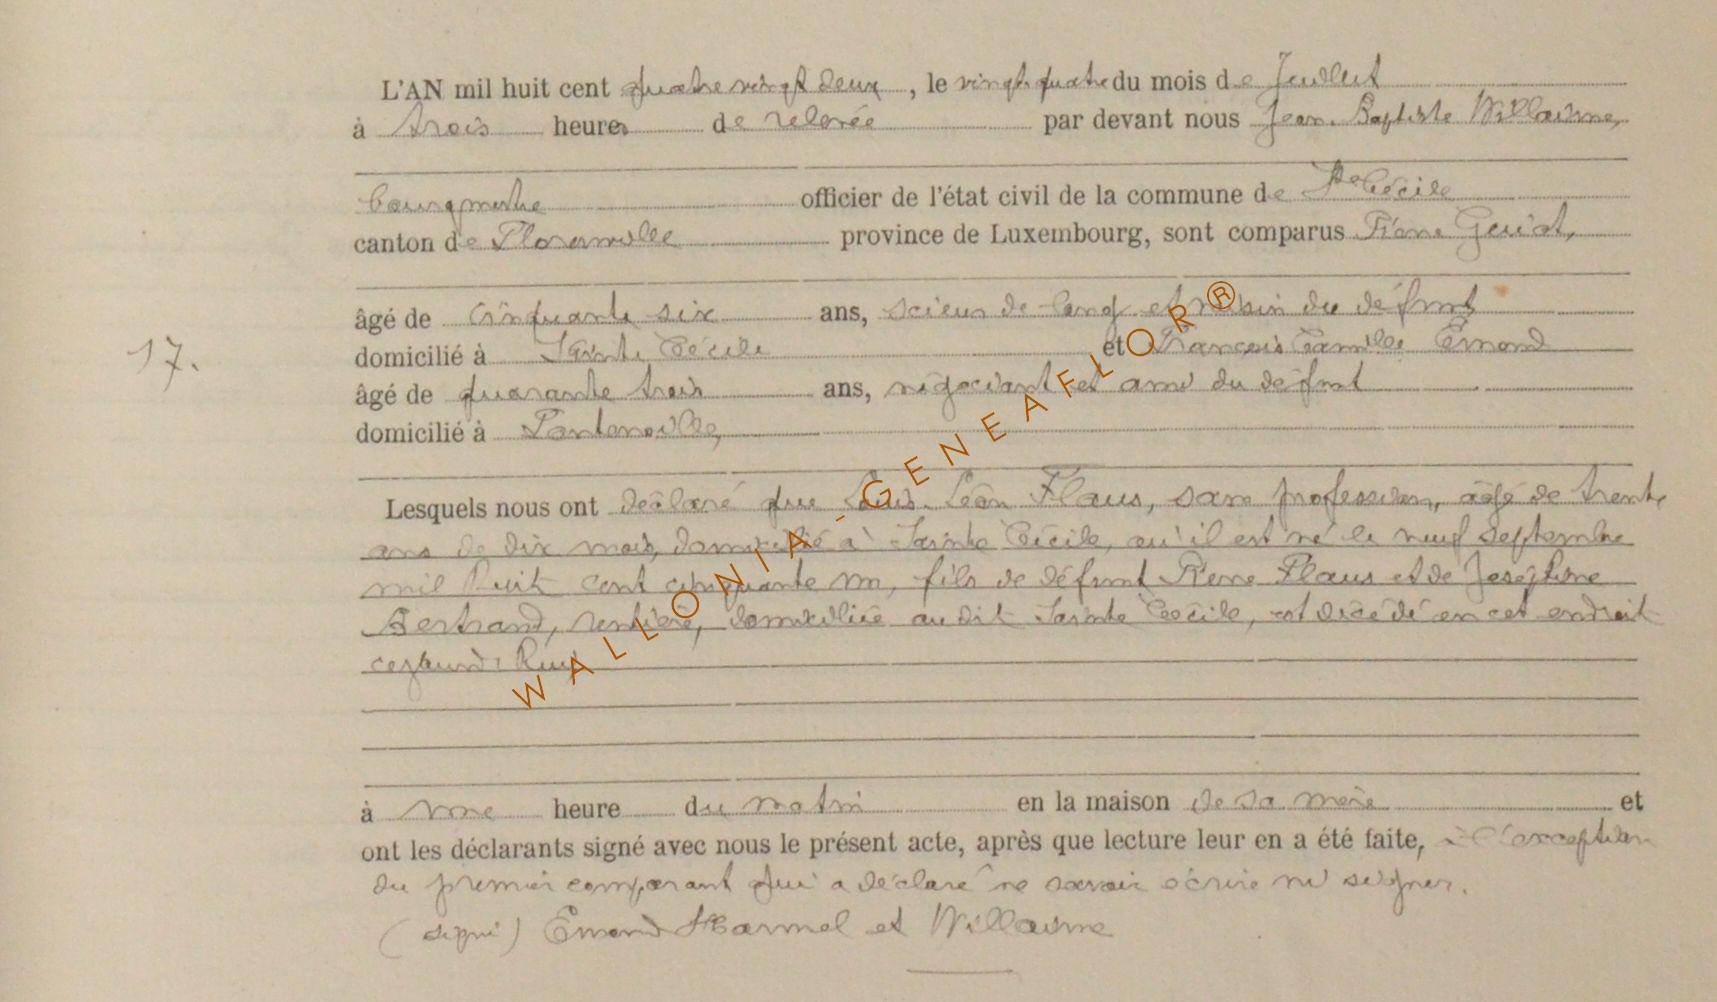 L'AN mil huit cent quatre vingt deux, le vingt quatre du mois de Juillet
à trois heures de relevée par devant nous Jean-Baptiste Willaime,
bourgmestre officier de l'état civil de la commune de Ste Cécile
canton de Florenville province de Luxembourg, sont comparus Pierre Guiot,
âgé de cinquante six ans, scieur de long et voisin du défunt
domicilié à Sainte Cécile et François Camille Emond
17. âgé de quarante trois ans, négociant et ami du défunt
domicilié à Fontenoille,
Lesquels nous ont déclaré que Louis Léon Flaus, sans profession, âgé de trente
ans de dix mois, domicilié à Sainte Cécile, qu'il est né le neuf Septembre
mil huit cent cinquante un, fils de défunt Pierre Flaus et de Joséphine
Bertrand, rentière, domiciliée au dit Sainte Cécile, est décédé en cet endroit
cejourd'hui
à une heure du matin en la maison de sa mère et
ont les déclarants signé avec nous le présent acte, après que lecture leur en a été faite, à l'exception
du premier comparant qui a déclaré ne savoir écrire ni signer.
(signé) Emond Harmel et Willaime
WALLONIA-GENEAFLOR®